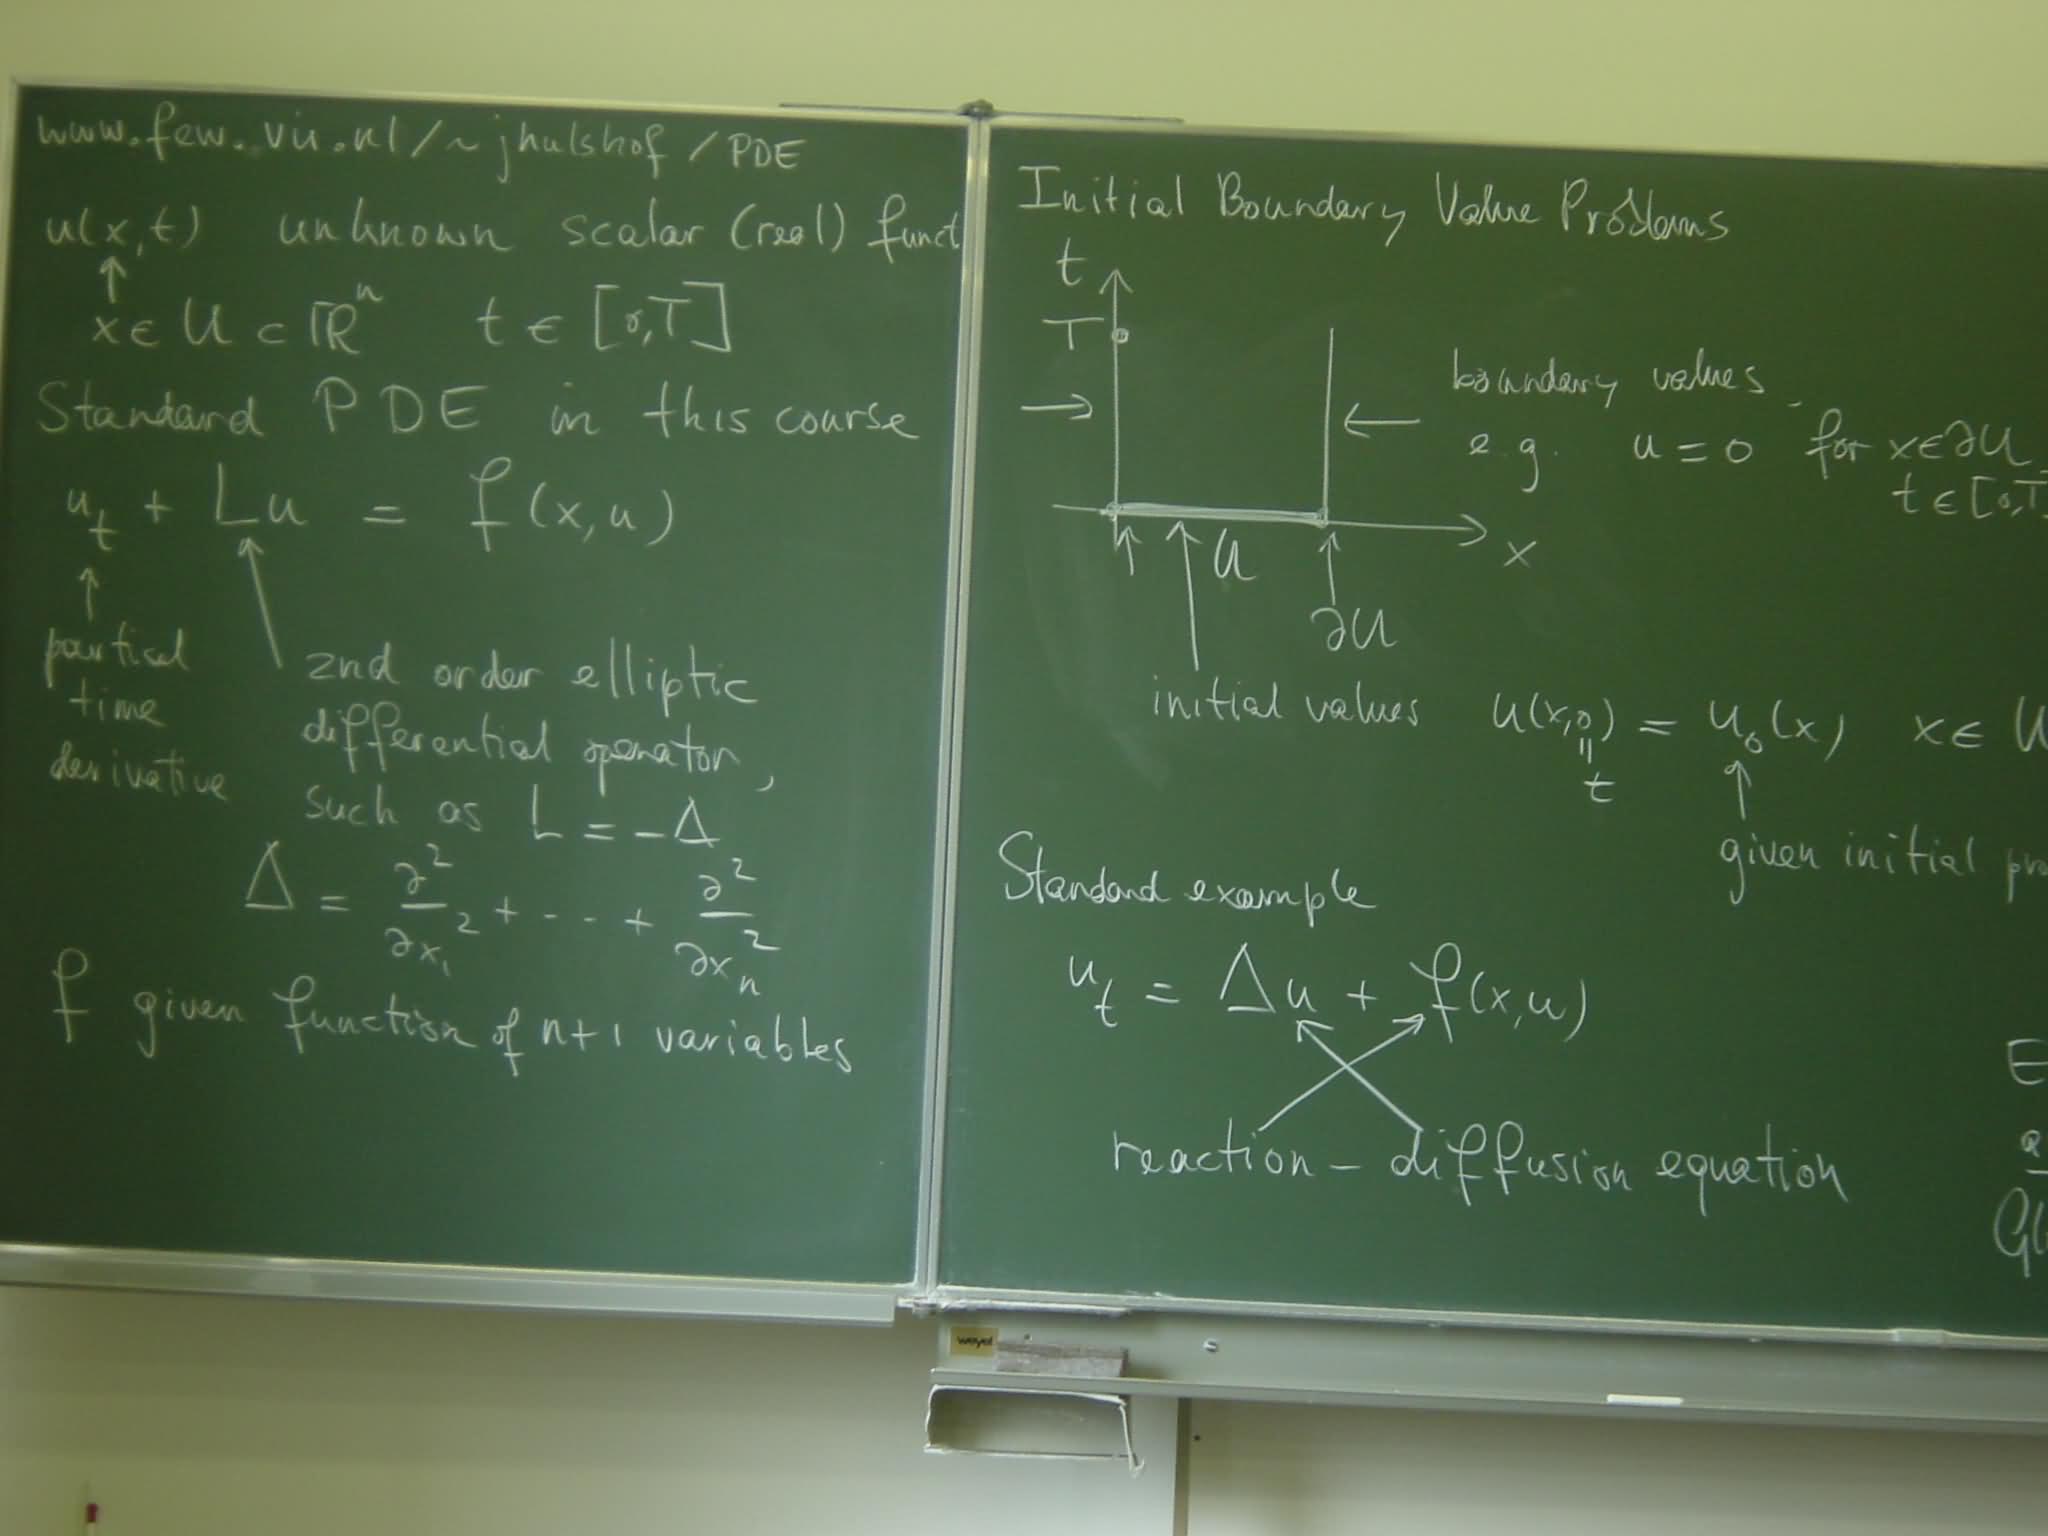 www.few.vu.nl/~jhulshof/PDE
u(x,t) unknown scalar (real) funct
↑
x ∈ U ⊂ ℝⁿ t ∈ [0,T]
Standard PDE in this course
u_t + Lu = f(x,u)
↑
partial
time
derivative
2nd order elliptic
differential operator,
such as L = -Δ
Δ = ∂²/∂x₁² + - - - + ∂²/∂xₙ²
f given function of n+1 variables
Initial Boundary Value Problems
t
T
boundary values
e.g. u = 0 for x∈∂U
t ∈ [0,T]
U
x
∂U
initial values u(x,0) = u₀(x) x ∈ U
=
t
↑
given initial
Standard example
u_t = Δu + f(x,u)
reaction - diffusion equation
E
Gl
weyel